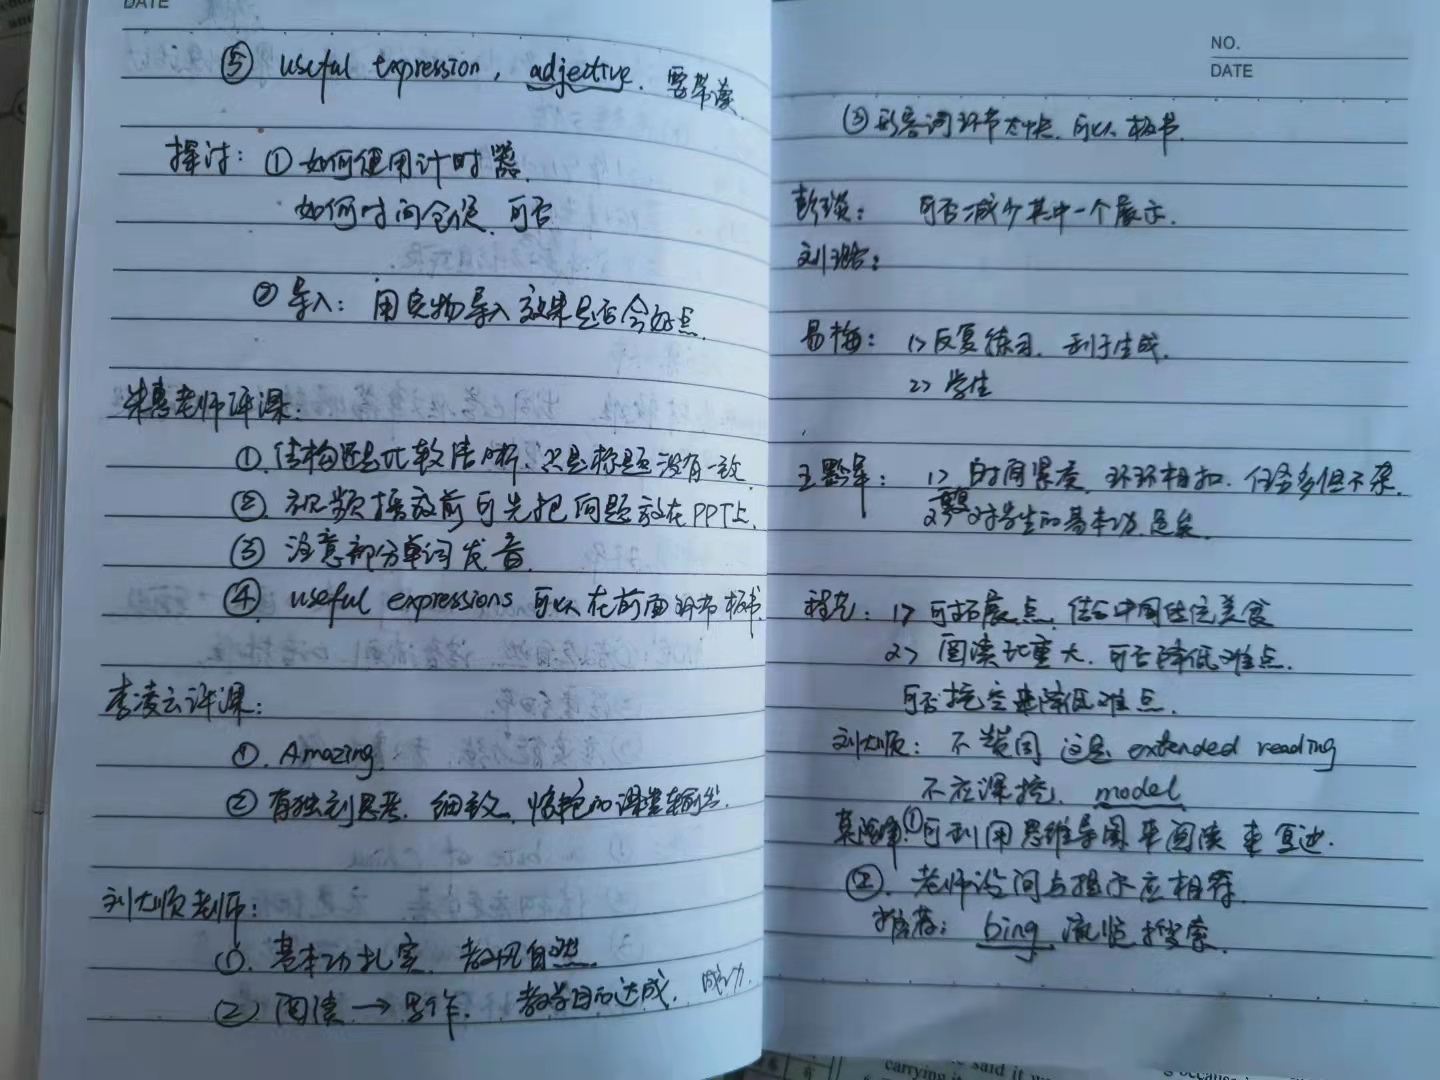 DATE
⑤ useful expression, adjective. 要带读
探讨: ① 如何使用计时器.
如何时间合适 可否
② 导入: 用实物导入效果是否会好点.
朱惠老师评课:
①. 结构还是比较清晰, 只是标题没有一致.
② 视频播放前可先把问题放在PPT上.
③ 注意部分单词发音.
④ useful expressions 可以在前面环节板书
李凌云评课:
①. Amazing.
② 有独到思考. 细致. 的课堂输出.
刘大顺老师:
①. 基本功扎实. 教风自然.
② 阅读 → 写作. 教学目的达成. 成功.
NO.
DATE
③ 形容词环节太快. 可以板书.
彭瑛: 可否减少其中一个展示.
刘:
易梅: 1> 反复练习. 利于生成.
2> 学生
王黔军: 1> 时间紧凑. 环环相扣. 任务多但不杂.
2> 对学生的基本功
程尧: 1> 可拓展点. 结合中国传统美食
2> 阅读比重大. 可否降低难点.
可否挖空来降低难点.
刘大顺: 不赞同 这是 extended reading
不应深挖. model
① 可利用思维导图来阅读 来复述.
②. 老师设问与提示应相符.
推荐: bing 浏览搜索.
said it
carrying